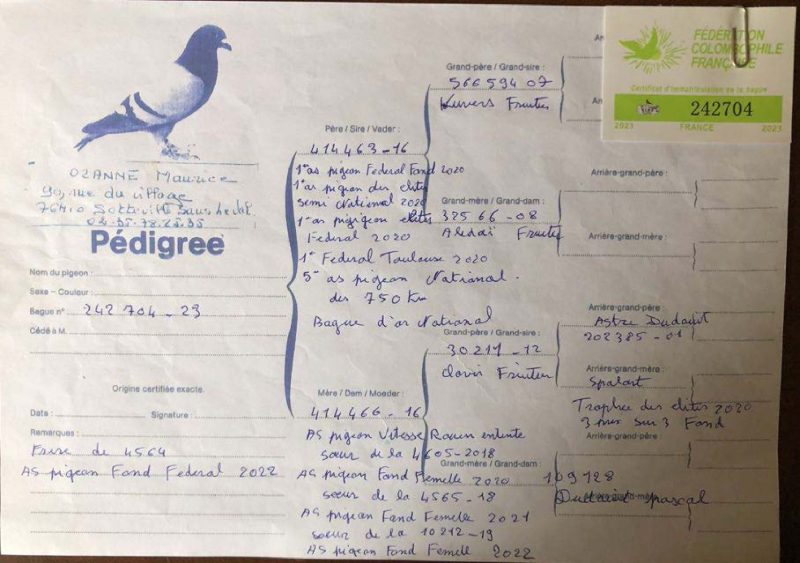 OZANNE Maurice
90, rue du village
76410 Sotteville Sous le Val
02-35-78-25-35
Pédigree
Nom du pigeon :
Sexe - Couleur :
Bague n° 242 704 - 23
Cédé à M.
Origine certifiée exacte.
Date : Signature :
Remarques :
de 4564
AS pigeon Fond Federal 2022
Père / Sire / Vader :
414463-16
1er as pigeon Federal Fond 2020
1er as pigeon des elites
Semi National 2020
1er as elites
Federal 2020
1er Federal Toulouse 2020
5e as pigeon National
des 750 Km
Bague d'or National
Mère / Dam / Moeder :
414466-16
AS pigeon Vitesse Rouen entente
sœur de la 4605-2018
AS pigeon Fond Femelle 2020
sœur de la 4565-18
AS pigeon Fond Femelle 2021
sœur de la 10212-19
AS pigeon Fond Femell 2022
Grand-père / Grand-sire :
566594 07
Fruitier
Grand-mère / Grand-dam :
32566-08
Fruitier
Grand-père / Grand-sire :
30211-12
Grand-mère / Grand-dam :
109128
Arrière-grand-père :
Arrière-grand-mère :
Arrière-grand-père :
Astre
202385-01
Arrière-grand-mère :
Spalart
Trophée des elites 2020
3 prix sur 3 Fond
Arrière-grand-père :
Arrière-grand-mère :
pascal
FÉDÉRATION
COLOMBOPHILE
FRANÇAISE
Certificat d'immatriculation de la bague
242704
2023 FRANCE 2023